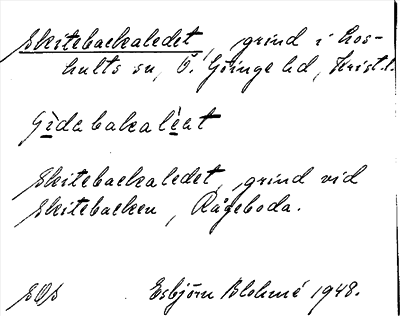 Skitebackaledet, grind i Los-
hults sn, Ö. Göinge hd, Krist. l.
Skitebackaledet, grind vid
Skitebacken, Rågeboda.
SOS Esbjörn Blohmé 1948.